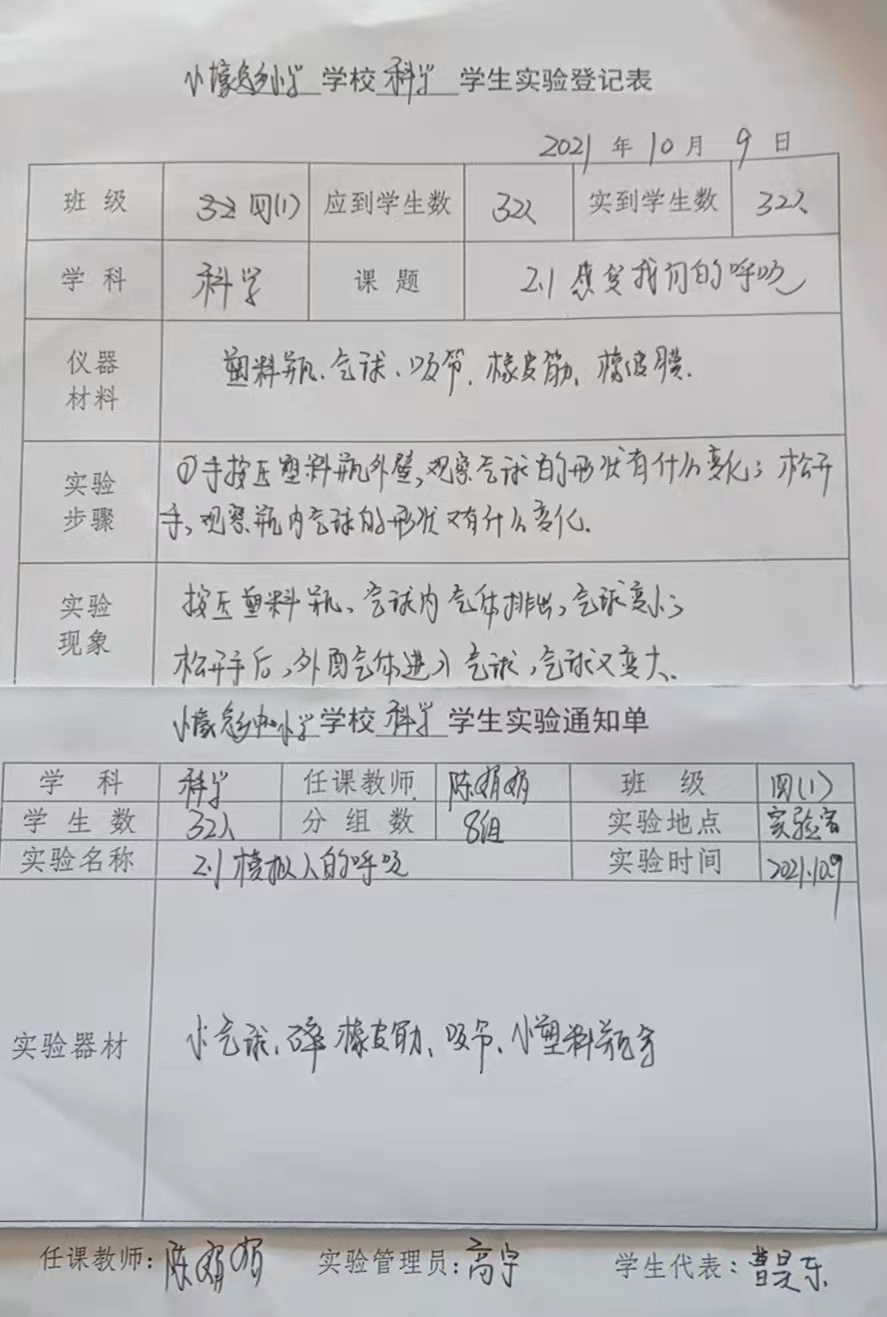 小 小学 学校 科学 学生实验登记表
2021 年 10 月 9 日
班 级 四(1) 应到学生数 32人 实到学生数 32人
学 科 科学 课 题 2.1 感受我们的呼吸
仪器材料 塑料瓶、气球、吸管、橡皮筋、橡皮膜.
实验步骤 ①手按压塑料瓶外壁,观察气球的形状有什么变化；松开
手,观察瓶内气球的形状又有什么变化.
实验现象 按压塑料瓶、气球内气体排出,气球变小；
松开手后,外面气体进入气球,气球又变大.
小 小学 学校 科学 学生实验通知单
学 科 科学 任课教师 陈娟娟 班 级 四(1)
学生数 32人 分组数 8组 实验地点 实验室
实验名称 2.1模拟人的呼吸 实验时间 2021.10.9
实验器材 小气球、橡皮筋、吸管、小塑料瓶等
任课教师：陈娟娟 实验管理员：高宇 学生代表：曹昊东